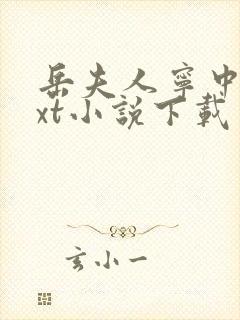 岳夫人寧中
xt小説下載
玄小一